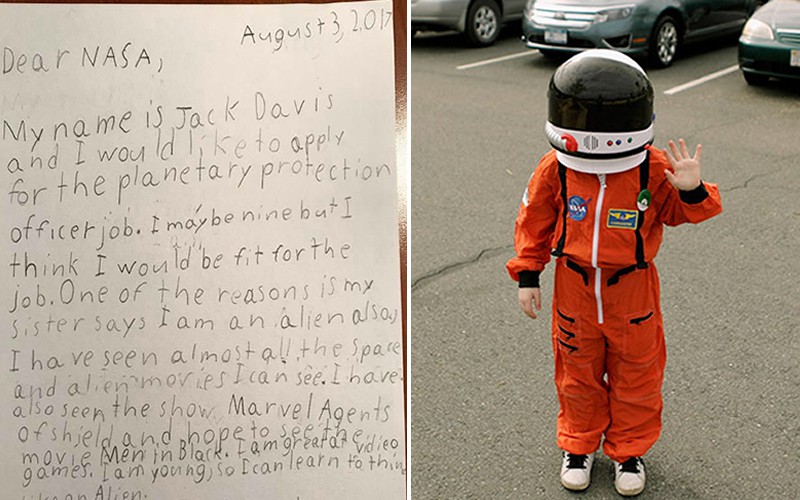 August 3, 2017
Dear NASA,
My name is Jack Davis
and I would like to apply
for the planetary protection
officer job. I may be nine but I
think I would be fit for the
job. One of the reasons is my
sister says I am an alien also,
I have seen almost all the space
and alien movies I can see. I have
also seen the show Marvel Agents
of shield and hope to see the
movie Men in Black. I am great at video
games. I am young, so I can learn to think
like an Alien.
NASA